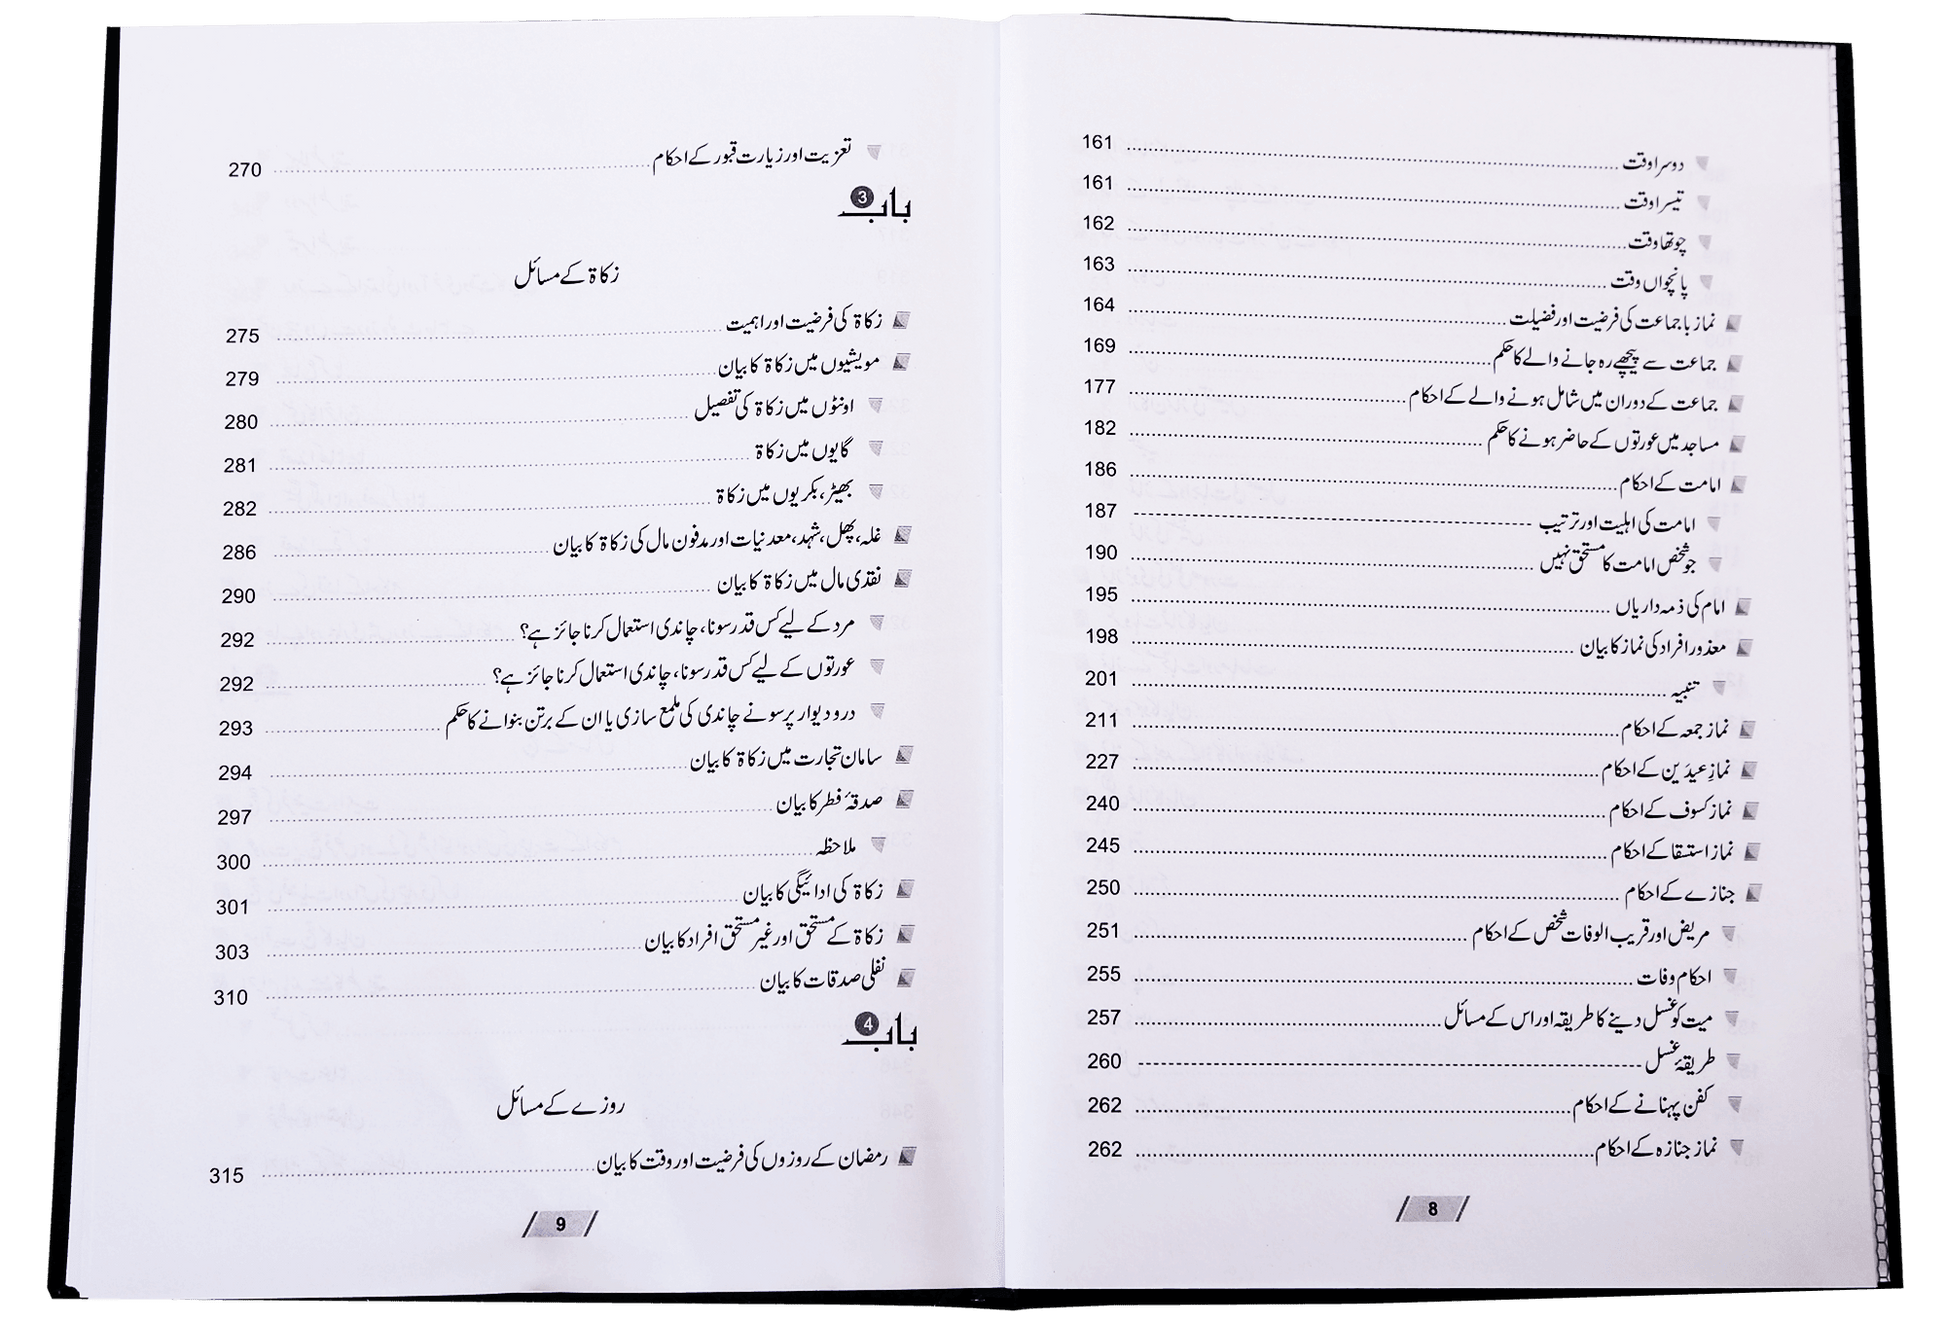 دوسرا وقت 161
تیسرا وقت 161
چوتھا وقت 162
پانچواں وقت 163
نماز باجماعت کی فرضیت اور فضیلت 164
جماعت سے پیچھے رہ جانے والے کا حکم 169
جماعت کے دوران میں شامل ہونے والے کے احکام 177
مساجد میں عورتوں کے حاضر ہونے کا حکم 182
امامت کے احکام 186
امامت کی اہلیت اور ترتیب 187
جو شخص امامت کا مستحق نہیں 190
امام کی ذمہ داریاں 195
معذور افراد کی نماز کا بیان 198
تنبیہ 201
نماز جمعہ کے احکام 211
نمازِ عیدَین کے احکام 227
نماز کسوف کے احکام 240
نماز استسقا کے احکام 245
جنازے کے احکام 250
مریض اور قریب الوفات شخص کے احکام 251
احکام وفات 255
میت کو غسل دینے کا طریقہ اور اس کے مسائل 257
طریقۂ غسل 260
کفن پہنانے کے احکام 262
نماز جنازہ کے احکام 262
8
تعزیت اور زیارت قبور کے احکام 270
باب 3
زکاۃ کے مسائل
زکاۃ کی فرضیت اور اہمیت 275
مویشیوں میں زکاۃ کا بیان 279
اونٹوں میں زکاۃ کی تفصیل 280
گایوں میں زکاۃ 281
بھیڑ، بکریوں میں زکاۃ 282
غلہ، پھل، شہد، معدنیات اور مدفون مال کی زکاۃ کا بیان 286
نقدی مال میں زکاۃ کا بیان 290
مرد کے لیے کس قدر سونا، چاندی استعمال کرنا جائز ہے؟ 292
عورتوں کے لیے کس قدر سونا، چاندی استعمال کرنا جائز ہے؟ 292
در و دیوار پر سونے چاندی کی ملمع سازی یا ان کے برتن بنوانے کا حکم 293
سامان تجارت میں زکاۃ کا بیان 294
صدقۂ فطر کا بیان 297
ملاحظہ 300
زکاۃ کی ادائیگی کا بیان 301
زکاۃ کے مستحق اور غیر مستحق افراد کا بیان 303
نفلی صدقات کا بیان 310
باب 4
روزے کے مسائل
رمضان کے روزوں کی فرضیت اور وقت کا بیان 315
9